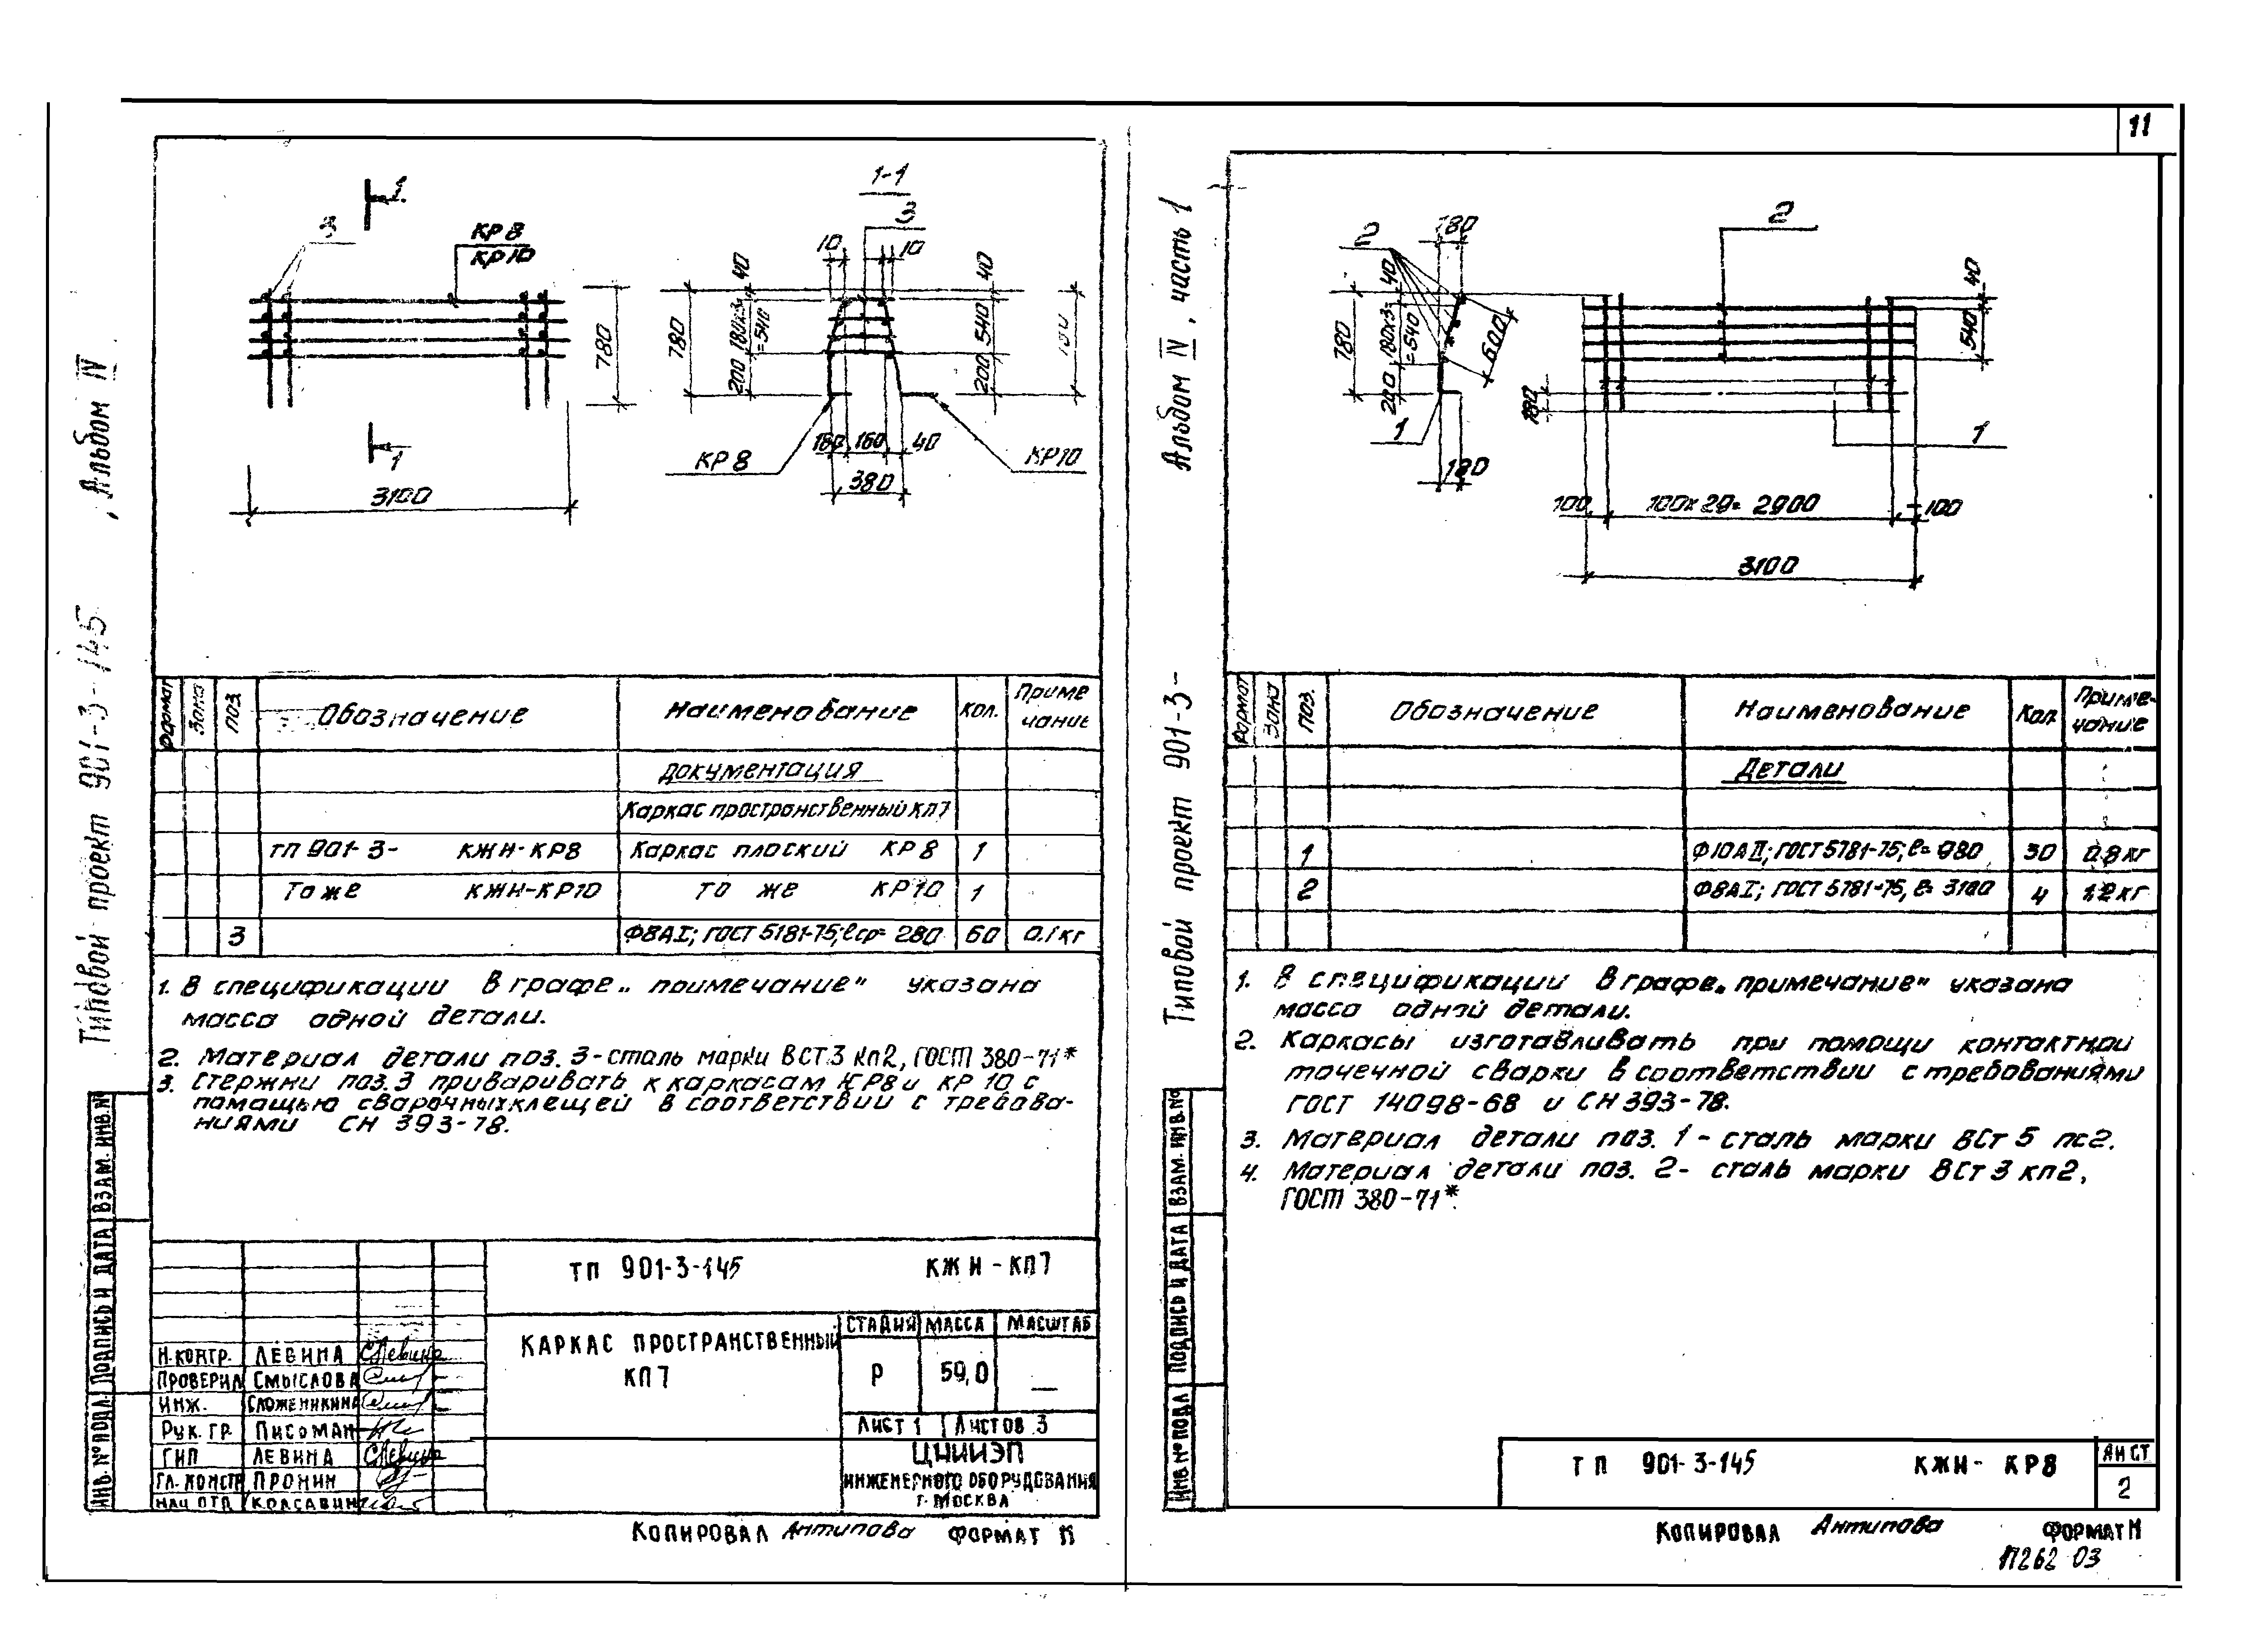 11
Типовой проект 901-3-145, Альбом IV
1
1
3
КР8
КР10
780
3100
1-1
3
10
10
40
180x3=
=540
200
780
40
540
200
КР8
180
160
40
380
КР10
Формат
Зона
Поз.
Обозначение
Наименование
Кол.
Приме
чание
Документация
Каркас пространственный КП7
ТП 901-3- КЖН-КР8 Каркас плоский КР8 1
То же КЖН-КР10 то же КР10 1
3 Ф8АI; ГОСТ 5181-75; ℓср= 280 60 0.1кг
1. В спецификации в графе „примечание" указана
масса одной детали.
2. Материал детали поз. 3-сталь марки ВСТ3 кп2, ГОСТ 380-71*
3. Стержни поз. 3 приваривать к каркасам КР8 и КР 10 с
помащью сварочных клещей в соответствии с требова-
ниями СН 393-78.
ВЗАМ. ИНВ.№
ПОДПИСЬ И ДАТА
ИНВ.№ ПОДЛ.
ТП 901-3-145 КЖН-КП7
КАРКАС ПРОСТРАНСТВЕННЫЙ
КП7
СТАДИЯ МАССА МАСШТАБ
Р 59,0 —
ЛИСТ 1 ЛИСТОВ 3
ЦНИИЭП
ИНЖЕНЕРНОГО ОБОРУДОВАНИЯ
Г. МОСКВА
Н.КОНТР. ЛЕВИНА
ПРОВЕРИЛ СМЫСЛОВА
ИНЖ. СЛОЖЕНИКИНА
РУК. ГР. ПИСЬМАН
ГИП ЛЕВИНА
ГЛ. КОНСТР ПРОНИН
НАЧ ОТД КОЛСАВИН
КОПИРОВАЛ Антипова ФОРМАТ
Типовой проект 901-3- Альбом IV, часть 1
2
180
40
180x3=
=540
200
780
600
1
180
2
40
540
180
1
100
100x29= 2900
100
3100
Формат
Зона
Поз.
Обозначение
Наименование
Кол.
Приме-
чание
Детали
1 Ф10АII; ГОСТ 5781-75; ℓ= 980 30 0.8 кг
2 Ф8АI; ГОСТ 5781-75, ℓ= 3100 4 1.2 кг
1. В спецификации в графе „примечание" указана
масса одной детали.
2. Каркасы изготавливать при помощи контактной
точечной сварки в соответствии с требованиями
ГОСТ 14098-68 и СН 393-78.
3. Материал детали поз. 1 - сталь марки ВСт 5 пс2.
4. Материал детали поз. 2- сталь марки ВСт 3 кп2,
ГОСТ 380-71*.
ВЗАМ. ИНВ.№
ПОДПИСЬ И ДАТА
ИНВ № ПОДЛ
ТП 901-3-145 КЖН- КР8
ЛИСТ
2
КОПИРОВАЛ Антипова ФОРМАТ
17262 03